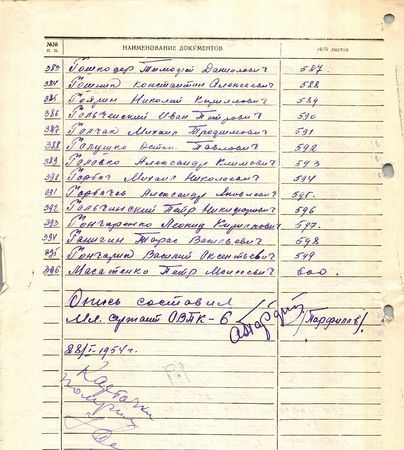 №№ п. п. НАИМЕНОВАНИЕ ДОКУМЕНТОВ №№ листов
383 Гошкодер Тимофей Данилович 587
384 Гошкин Константин Алексеевич 588
385 Гоярин Николай Кириллович 589
386 Гольченский Иван Петрович 590
387 Галчак Михаил Трофимович 591
388 Галушко Остап Павлович 592
389 Головко Александр Климович 593
390 Горбач Михаил Николаевич 594
391 Горбачев Александр Яковлевич 595
392 Гольчинский Пётр Никифорович 596
393 Гончаренко Леонид Кириллович 597
394 Ганшин Тарас Васильевич 598
395 Гончарик Василий Оксентьевич 549
396 Масатенко Пётр Моисеевич 600
Опись составил
Мл. сержант ОВТК-6 /Парфилов/
28/I-1954 г.
Карточки
получил